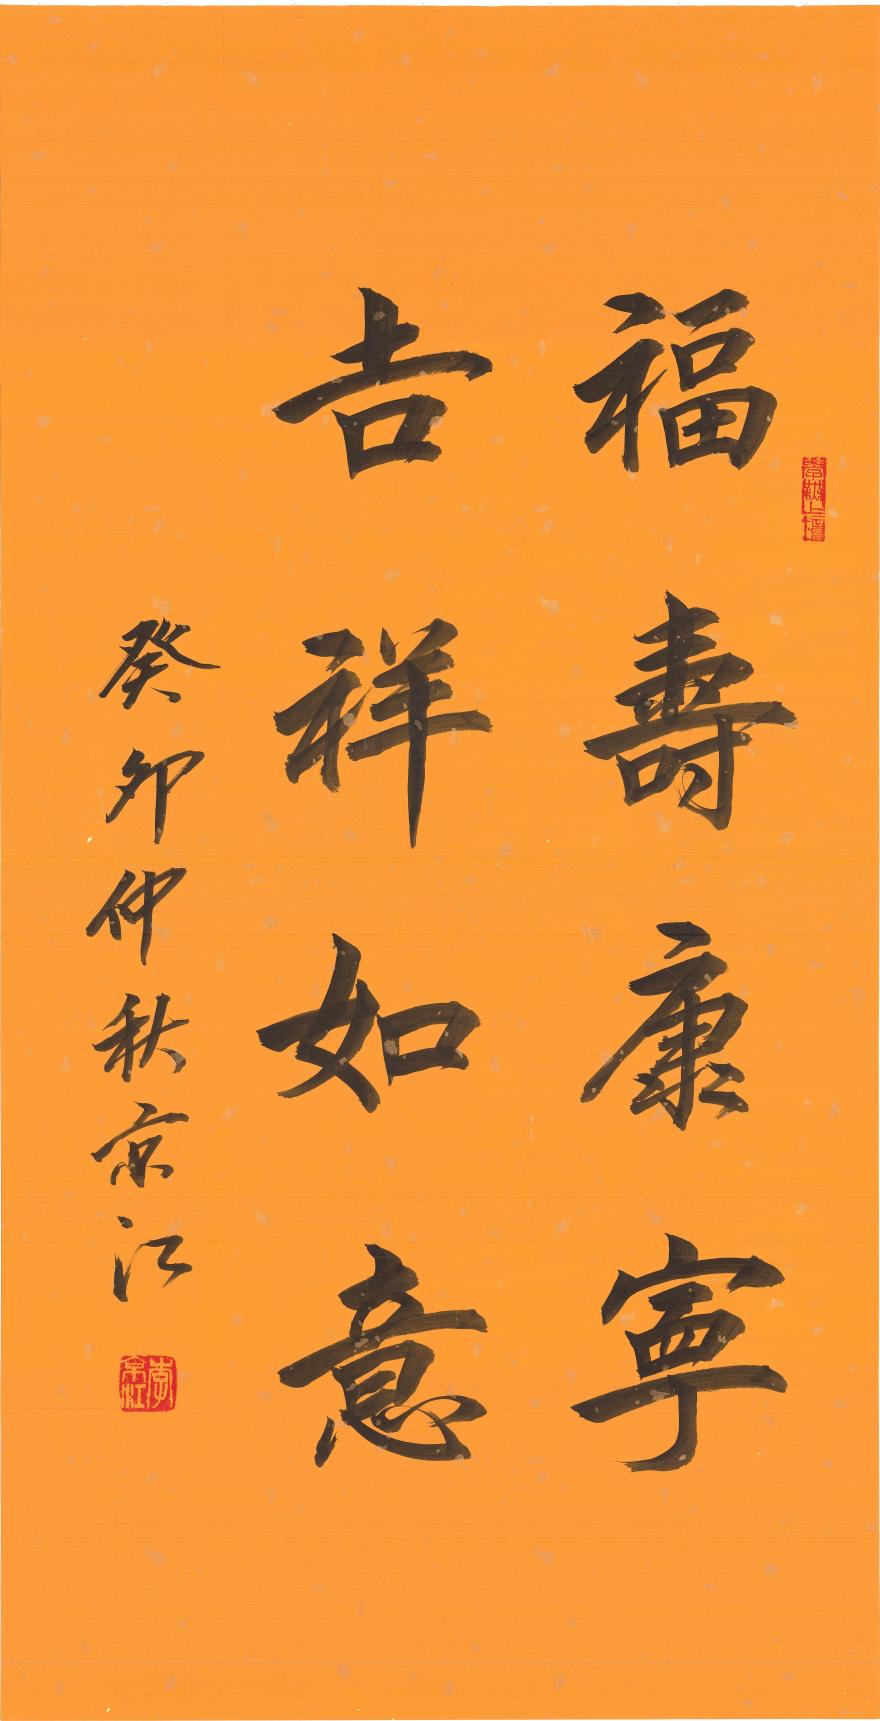 福壽康寧
吉祥如意
癸卯仲秋京江
李京江